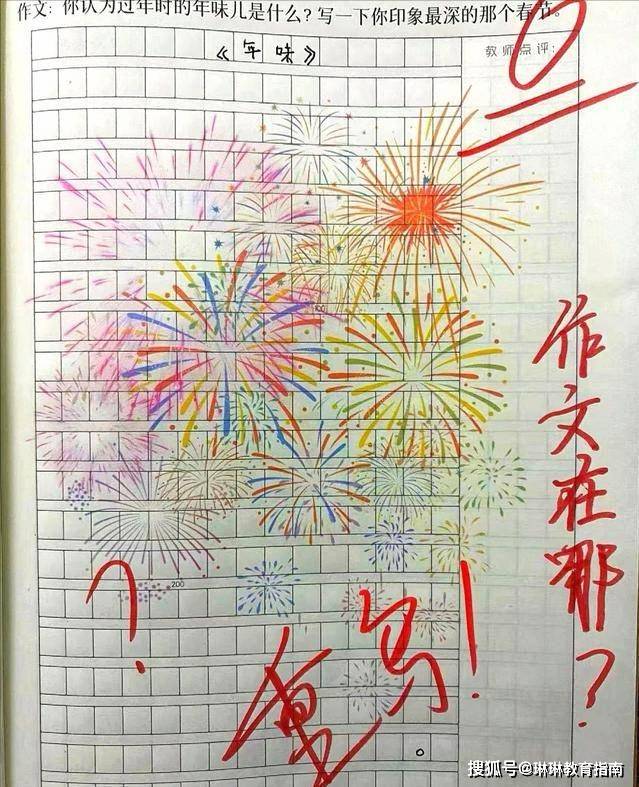 作文：你认为过年时的年味儿是什么？写一下你印象最深的那个春节。
《年味》
教师点评：
0
100
作文在哪？
200
？
重写！
。
搜狐号@琳琳教育指南